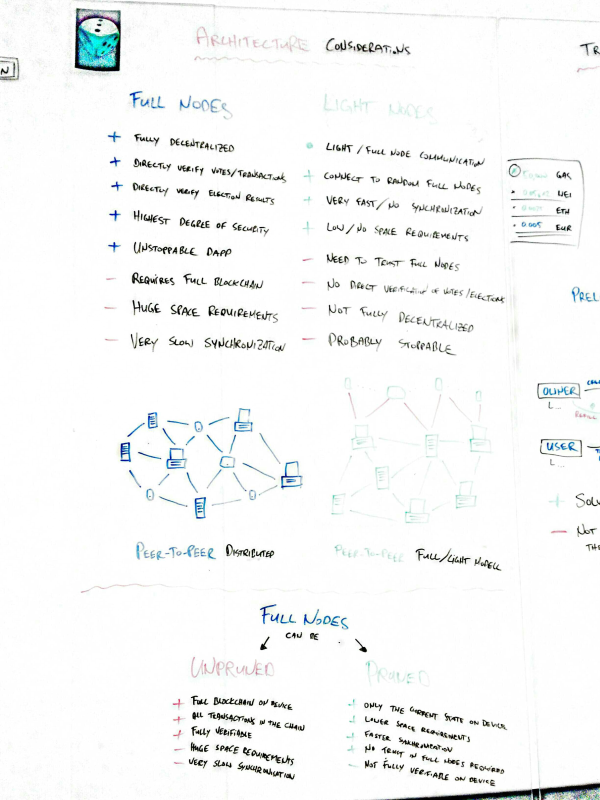 ARCHITECTURE CONSIDERATIONS
FULL NODES
+ FULLY DECENTRALIZED
+ DIRECTLY VERIFY VOTES/TRANSACTIONS
+ DIRECTLY VERIFY ELECTION RESULTS
+ HIGHEST DEGREE OF SECURITY
+ UNSTOPPABLE DAPP
- REQUIRES FULL BLOCKCHAIN
- HUGE SPACE REQUIREMENTS
- VERY SLOW SYNCHRONIZATION
LIGHT NODES
LIGHT/FULL NODE COMMUNICATION
+ CONNECT TO RANDOM FULL NODES
+ VERY FAST/NO SYNCHRONIZATION
+ LOW/NO SPACE REQUIREMENTS
- NEED TO TRUST FULL NODES
- NO DIRECT VERIFICATION OF VOTES/ELECTIONS
- NOT FULLY DECENTRALIZED
- PROBABLY STOPPABLE
PEER-TO-PEER DISTRIBUTED
PEER-TO-PEER FULL/LIGHT MODELL
FULL NODES
CAN BE
UNPRUNED
+ FULL BLOCKCHAIN ON DEVICE
+ ALL TRANSACTIONS IN THE CHAIN
+ FULLY VERIFIABLE
- HUGE SPACE REQUIREMENTS
- VERY SLOW SYNCHRONICATION
PRUNED
+ ONLY THE CURRENT STATE ON DEVICE
+ LOWER SPACE REQUIREMENTS
+ FASTER SYNCHRONICATION
+ NO TRUST IN FULL NODES REQUIRED
- NOT FULLY VERIFIABLE ON DEVICE
N
TR
GAS
WEI
ETH
0.005 EUR
PREL
OWNER
L...
USER
L...
+ SOLV
- NOT
THE